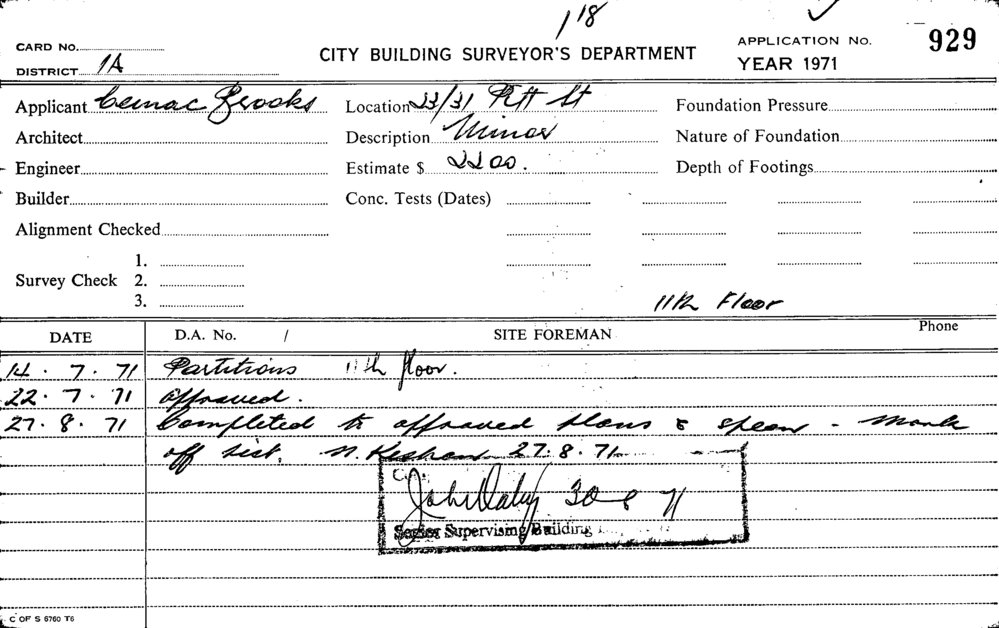 1/18
CARD No.
CITY BUILDING SURVEYOR'S DEPARTMENT
APPLICATION No. 929
DISTRICT 1A
YEAR 1971
Applicant Cemac Brooks
Location 23/31 Pitt St
Foundation Pressure
Architect
Description Minor
Nature of Foundation
Engineer
Estimate $ 2200.
Depth of Footings
Builder
Conc. Tests (Dates)
Alignment Checked
1.
Survey Check 2.
3.
11th Floor
DATE
D.A. No. /
SITE FOREMAN
Phone
14.7.71 Partitions 11th floor.
22.7.71 Approved.
27.8.71 Completed to approved plans & specs - mark
off list. 27.8.71
John Daly 30 8 71
Senior Supervising Building
C OF S 6760 T6